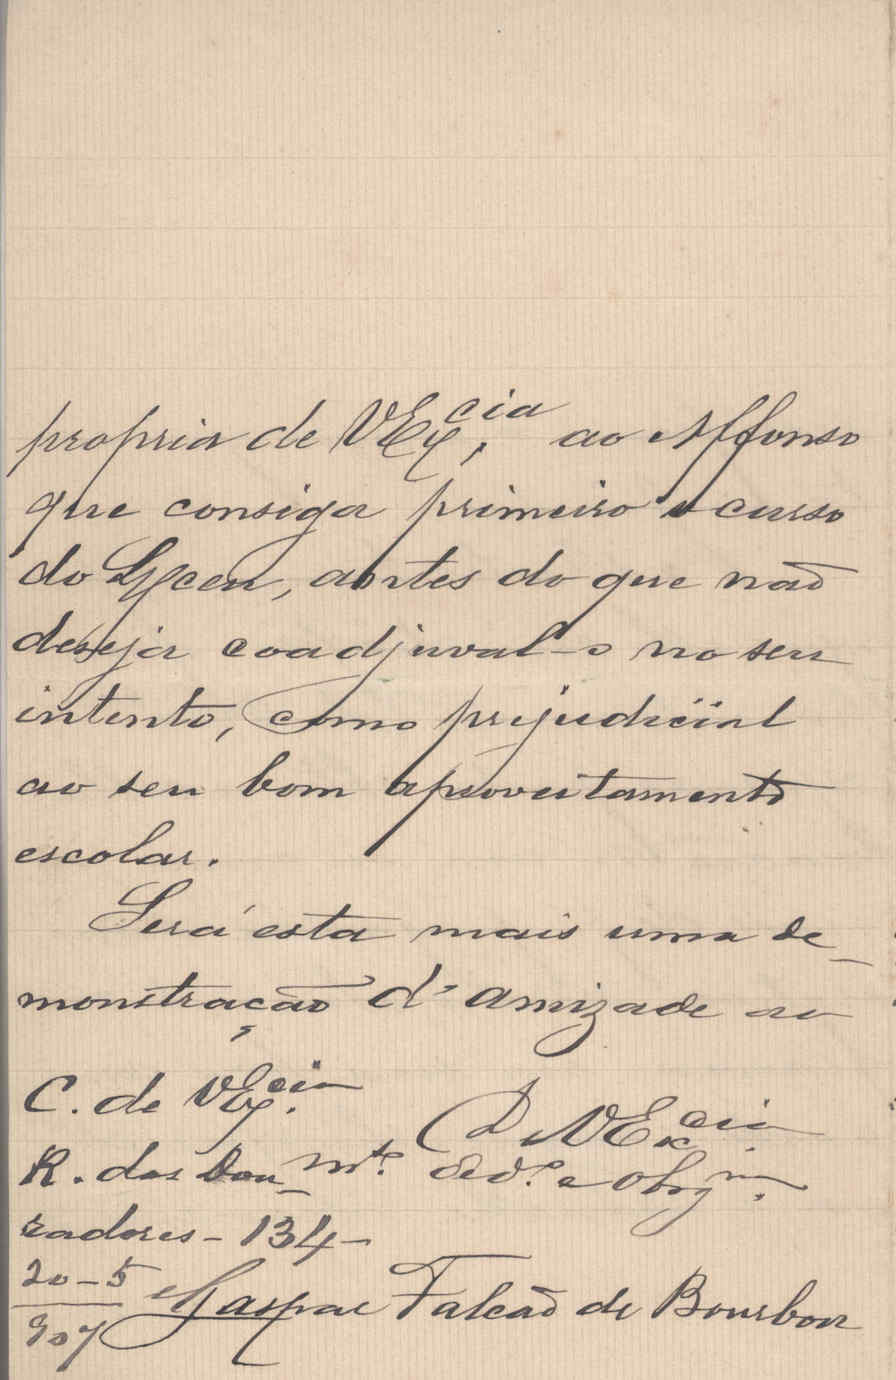 propria de VEx.cia, ao Affonso
que consiga primeiro o curso
do Lyceu, antes do que não
deseja coadjuval-o no seu
intento, como prejudicial
ao seu bom aproveitamento
escolar.
Será esta mais uma de-
monstração d'amizade ao
C. de VEx.cia
De VEx.cia
R. dos Dou-
mto. Dedo. e Obrgmo.
radores - 134 -
20-5
907
Gaspar Falcão de Bourbon